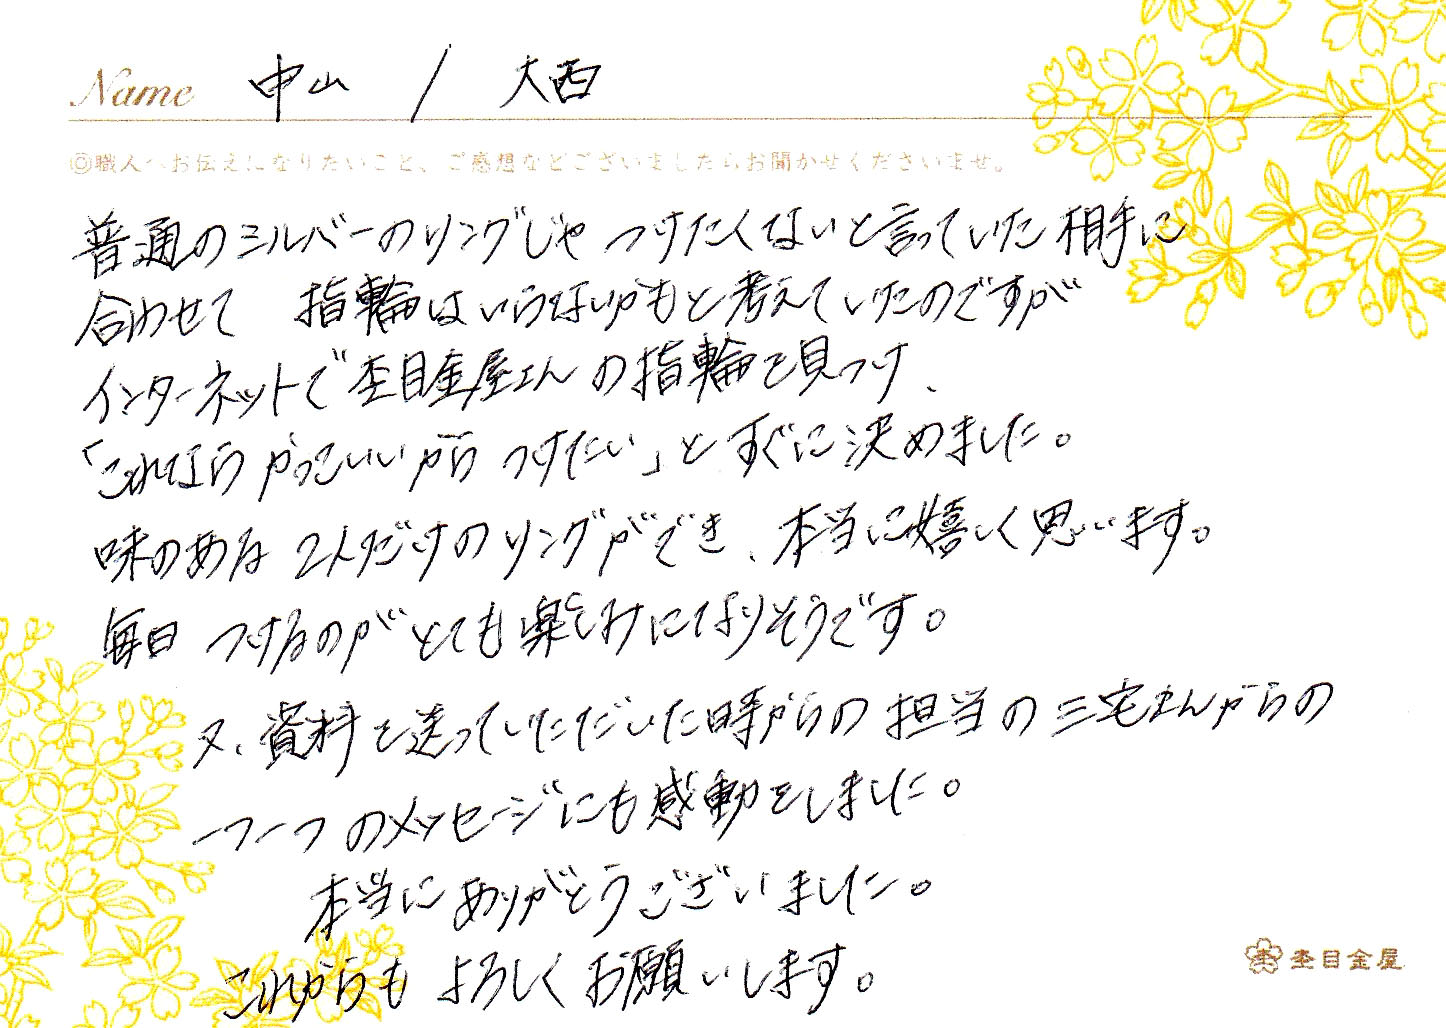 Name 中山 / 大西
◎職人へお伝えになりたいこと、ご感想などございましたらお聞かせくださいませ。
普通のシルバーのリングじゃ つけたくないと言っていた相手に
合わせて 指輪はいらないかもと考えていたのですが
インターネットで杢目金屋さんの指輪を見つけ、
「これなら かっこいいから つけたい」と すぐに決めました。
味のある 2人だけのリングができ、本当に嬉しく思います。
毎日 つけるのが とても楽しみになりそうです。
又、資料を送っていただいた時からの担当の三宅さんからの
一つ一つのメッセージにも感動をしました。
本当にありがとうございました。
これからも よろしくお願いします。
杢目金屋